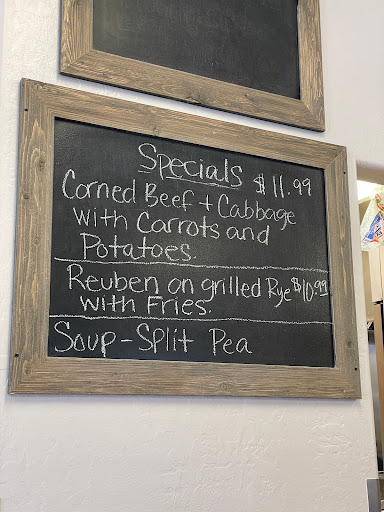 Specials $11.99
Corned Beef + Cabbage
with Carrots and
Potatoes.
Reuben on grilled Rye $10.99
with Fries.
Soup-Split Pea